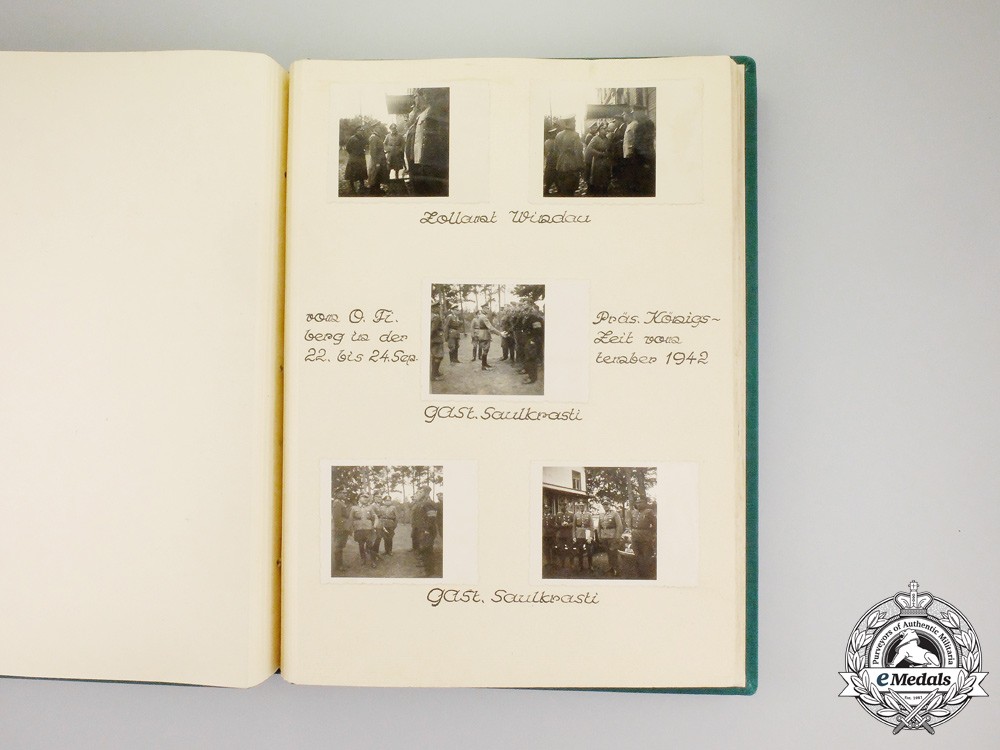 Zollamt Windau
vom O. Fi.
berg in der
22. bis 24. Sep.
Präs. Königs~
Zeit vom
tember 1942
GASt. Saulkrasti
GASt. Saulkrasti
Purveyors of Authentic Militaria
eMedals
Est. 1987